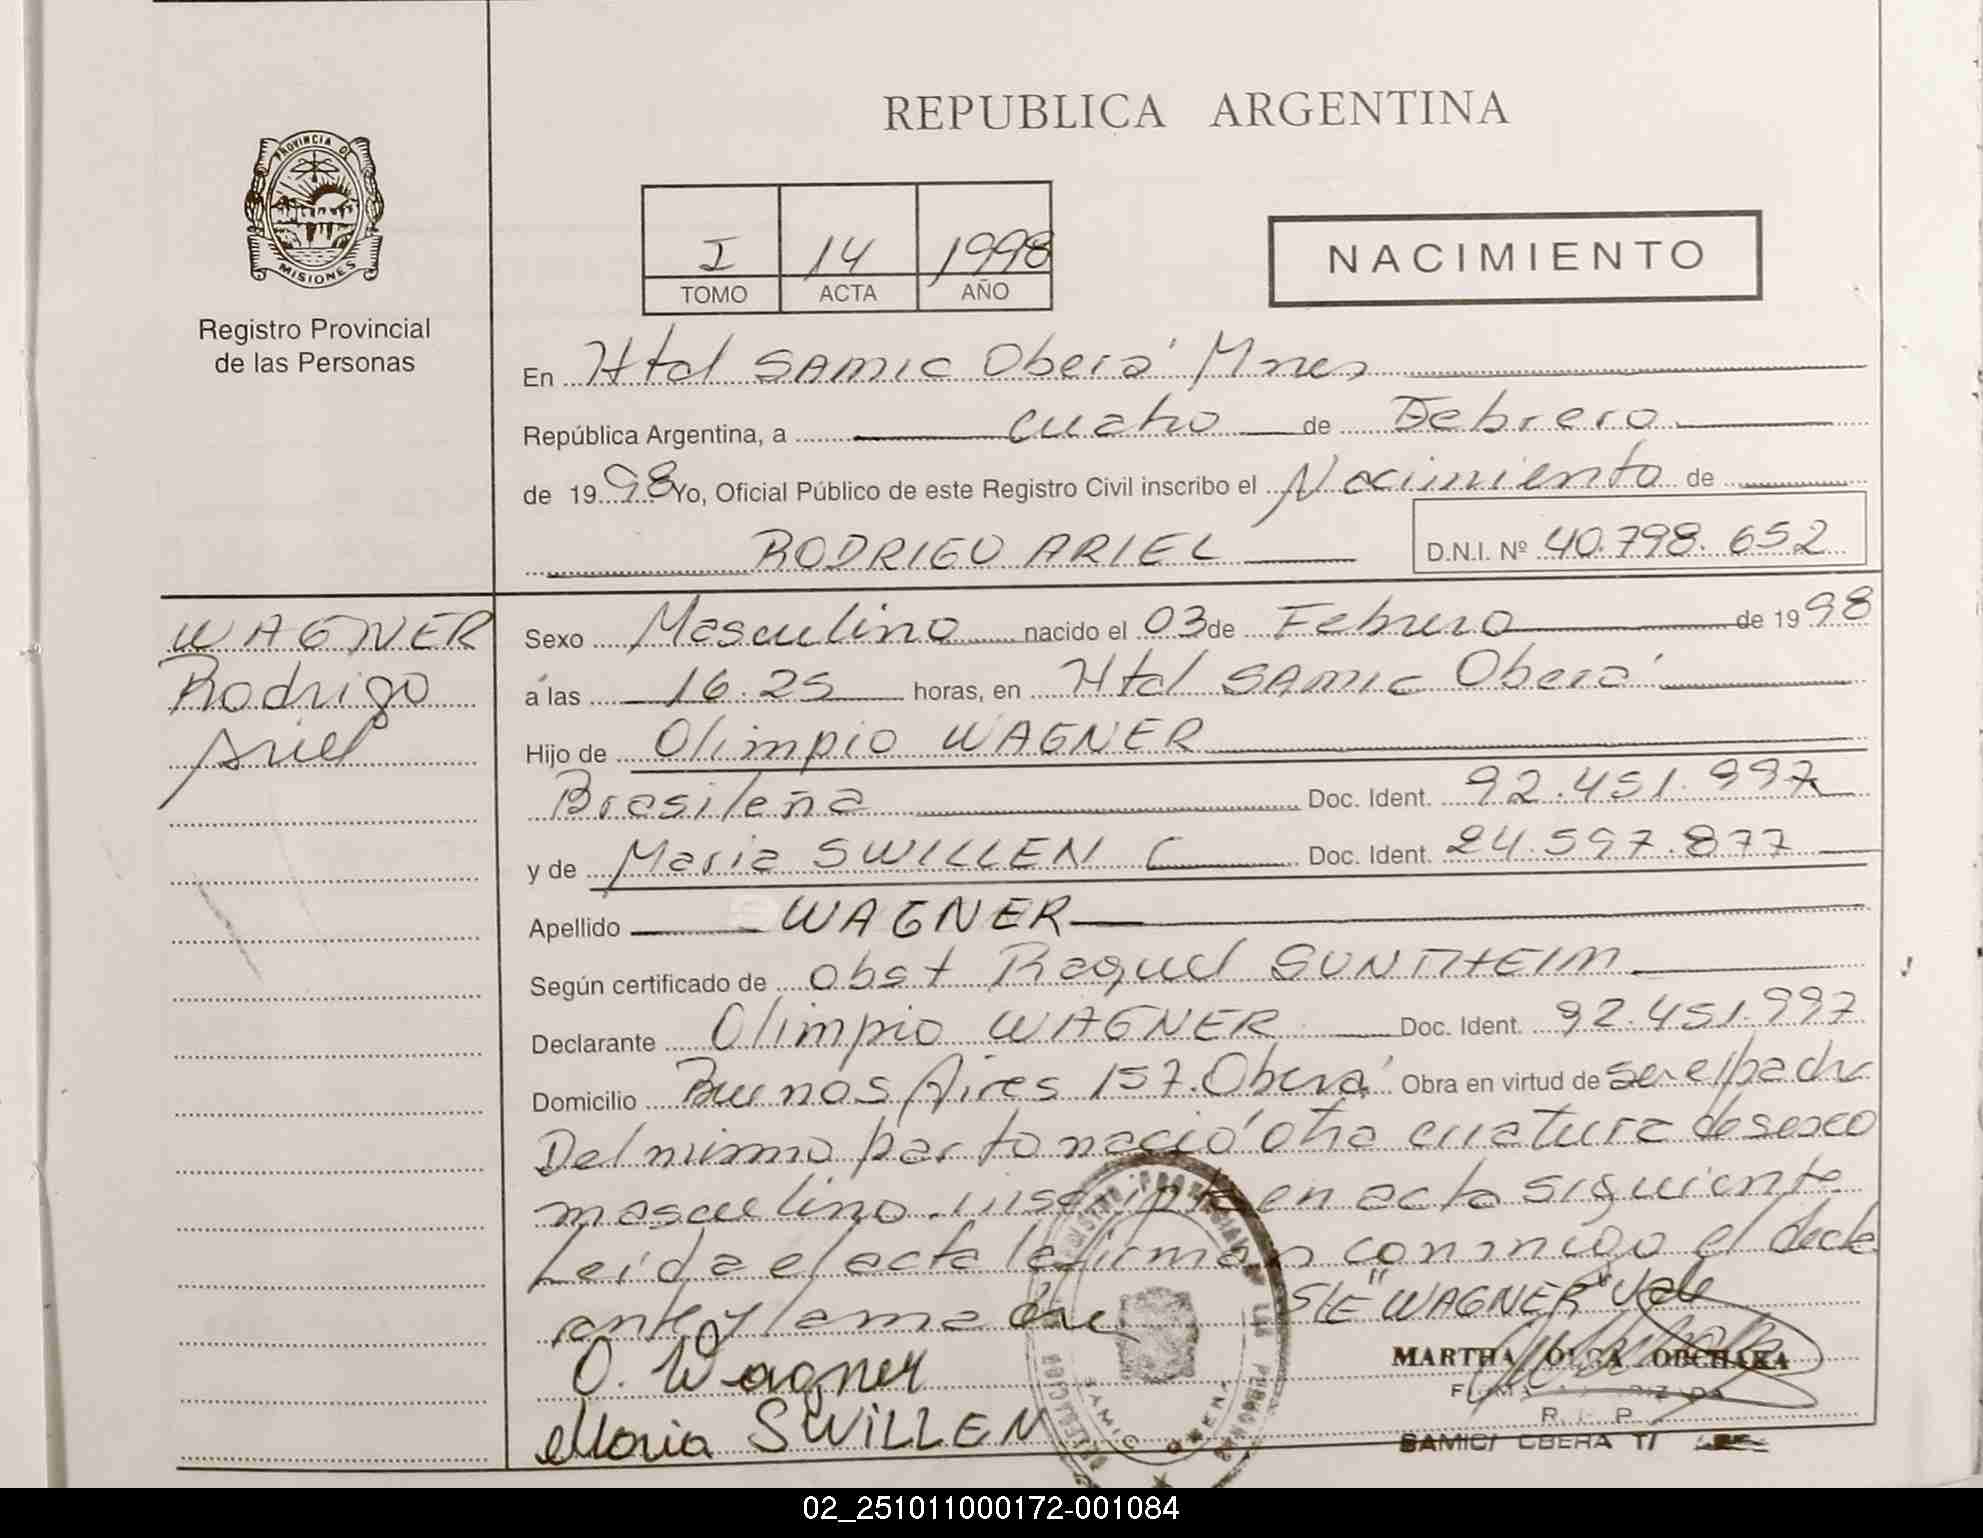 REPUBLICA ARGENTINA
PROVINCIA DE
MISIONES
Registro Provincial
de las Personas
I 14 1998
TOMO ACTA AÑO
NACIMIENTO
En Htal SAMIC Oberá Mnes
República Argentina, a cuatro de Febrero
de 1998 Yo, Oficial Público de este Registro Civil inscribo el Nacimiento de
RODRIGO ARIEL D.N.I. Nº 40.798.652
WAGNER
Rodrigo
Ariel
Sexo Masculino nacido el 03 de Febrero de 1998
a las 16.25 horas, en Htal SAMIC Oberá
Hijo de Olimpio WAGNER
Brasileña Doc. Ident. 92.451.997
y de Maria SWILLEN Doc. Ident. 24.597.877
Apellido WAGNER
Según certificado de obst Raquel
Declarante Olimpio WAGNER Doc. Ident. 92.451.997
Domicilio Buenos Aires 157. Oberá Obra en virtud de ser el padre
Del mismo parto nació otra criatura de sexo
masculino. inscripta en acta siguiente
Leída el acta la firman conmigo el decla
rante y la madre S/E "WAGNER" Vale
O. Wagner
Maria SWILLEN
MARTHA OLGA
R. P.
SAMIC OBERA
02_251011000172-001084